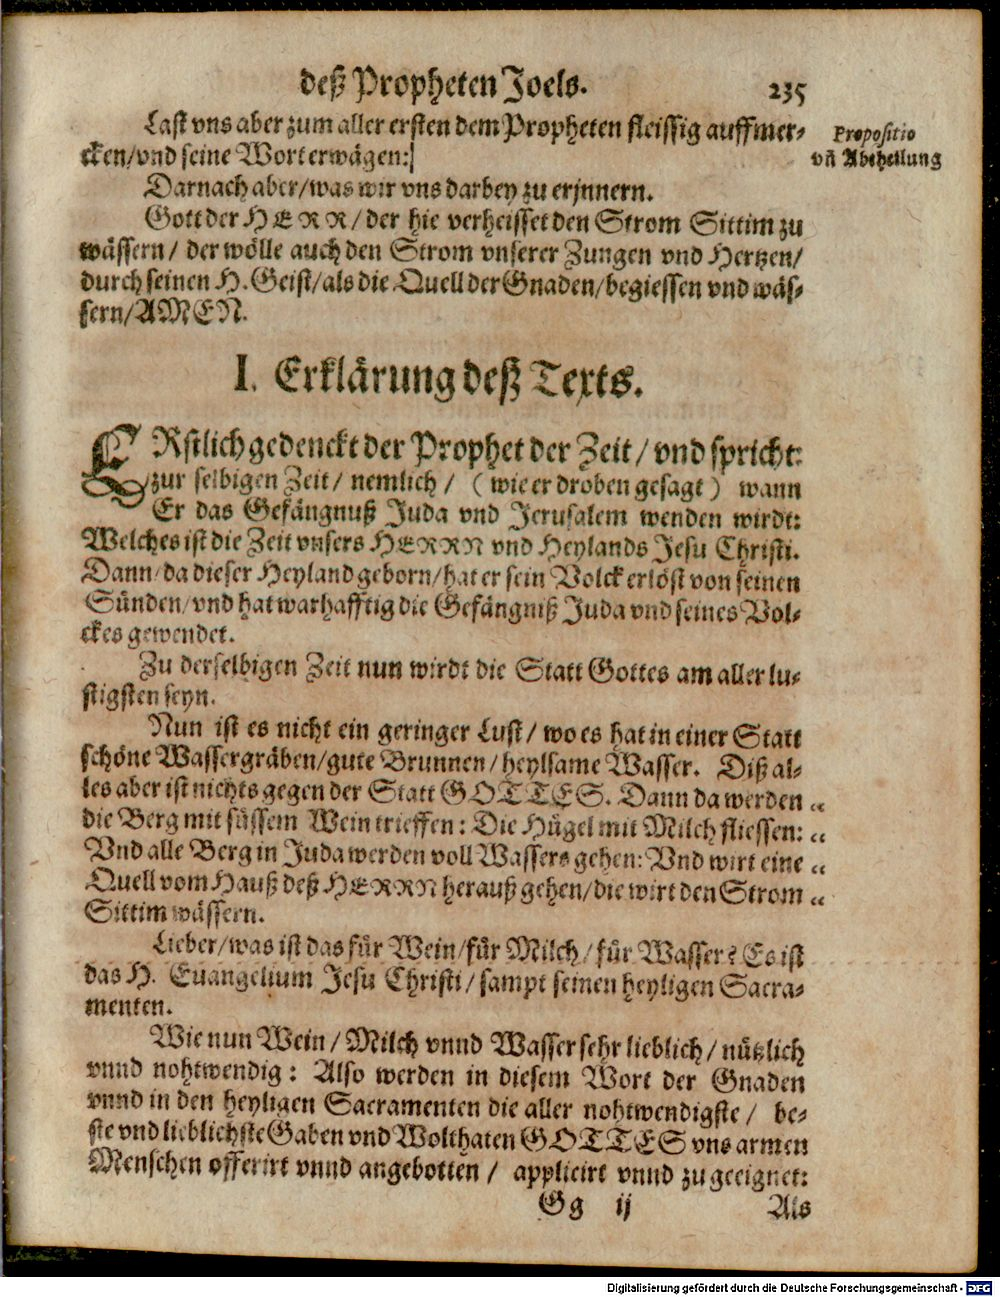 deß Propheten Joels. 235
Last vns aber zum aller ersten dem Propheten fleissig auffmer-
cken/vnd seine Wort erwägen:
Propositio
vñ Abtheilung
Darnach aber/was wir vns darbey zu erjnnern.
Gott der HERR/der hie verheisset den Strom Sittim zu
wässern/ der wölle auch den Strom vnserer Zungen vnd Hertzen/
durch seinen H. Geist/als die Quell der Gnaden/begiessen vnd wäs-
sern/AMEN.
I. Erklärung deß Texts.
ERstlich gedenckt der Prophet der Zeit/ vnd spricht:
zur selbigen Zeit/ nemlich/ (wie er droben gesagt) wann
Er das Gefängnuß Juda vnd Jerusalem wenden wirdt:
Welches ist die Zeit vnsers HERRN vnd Heylands Jesu Christi.
Dann/da dieser Heyland geborn/hat er sein Volck erlöst von seinen
Sünden/vnd hat warhafftig die Gefängniß Juda vnd seines Vol-
ckes gewendet.
Zu derselbigen Zeit nun wirdt die Statt Gottes am aller lu-
stigsten seyn.
Nun ist es nicht ein geringer Lust/ wo es hat in einer Statt
schöne Wassergräben/gute Brunnen/heylsame Wasser. Diß al-
les aber ist nichts gegen der Statt GOTTES. Dann da werden „
die Berg mit süssem Wein trieffen: Die Hügel mit Milch fliessen: „
Vnd alle Berg in Juda werden voll Wassers gehen: Vnd wirt eine „
Quell vom Hauß deß HERRN herauß gehen/die wirt den Strom „
Sittim wässern.
Lieber/was ist das für Wein/für Milch/für Wasser? Es ist
das H. Euangelium Jesu Christi/sampt seinen heyligen Sacra-
menten.
Wie nun Wein/Milch vnnd Wasser sehr lieblich/nützlich
vnnd nohtwendig: Also werden in diesem Wort der Gnaden
vnnd in den heyligen Sacramenten die aller nohtwendigste/ be-
ste vnd lieblichste Gaben vnd Wolthaten GOTTES vns armen
Menschen offerirt vnnd angebotten/ applicirt vnnd zu geeignet:
Gg ij Als
Digitalisierung gefördert durch die Deutsche Forschungsgemeinschaft - DFG